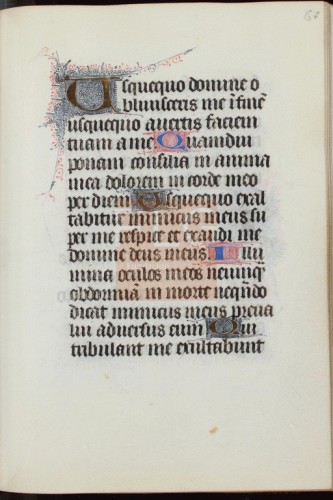 57
Usquequo domine o
bliuisceris me ī finē
usquequo auertis faciem
tuam a me Quamdiu
ponam consilia in anima
mea dolorem in corde meo
per diem Usquequo exal
tabitur inimicus meus su
per me respice et exaudi me
domine deus meus. Illu
mina oculos meos ne unq̄
obdormiā in morte neqn̄do
dicat inimicus meus preua
lui aduersus eum Qui
tribulant me exultabunt